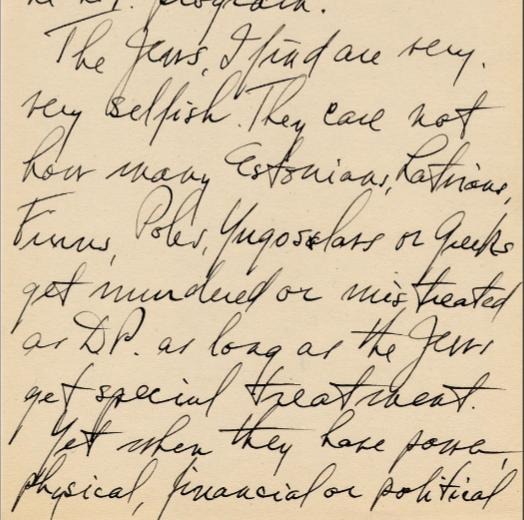 the D.P. program.
The Jews, I find are very,
very selfish. They care not
how many Estonians, Latvians,
Finns, Poles, Yugoslavs or Greeks
get murdered or mistreated
as D.P. as long as the Jews
get special treatment.
Yet when they have power,
physical, financial or political